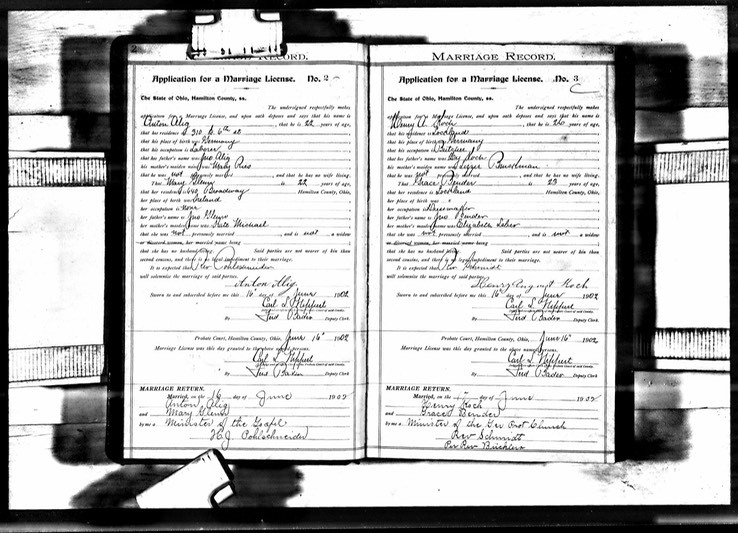 2
MARRIAGE RECORD.
Application for a Marriage License. No. 2
The State of Ohio, Hamilton County, ss.
The undersigned respectfully makes
application for a Marriage License, and upon oath deposes and says that his name is
Anton Alig, that he is 22 years of age,
that his residence is 310 E. 6th st
that his place of birth was Germany
that his occupation is Laborer
that his father's name was Jno Alig
his mother's maiden name was
that he was not previously married, that he has no wife living.
That Mary Glenn is 22 years of age,
that her residence is 640 Broadway Hamilton County, Ohio,
her place of birth was Ireland
her occupation is None
her father's name is Jno Glenn
her mother's maiden name was Kate Michael
that she was not previously married and is not a widow
or divorced woman, her married name being
that she has no husband living. Said parties not nearer of kin than
second cousins, and there is no legal impediment to their marriage.
It is expected that Rev Pohlschneider
will solemnize the marriage of said parties.
Anton Alig
Sworn to and subscribed before me this 16" day of June 1902
Carl L. Nippert
By Ferd Bader Deputy Clerk
Probate Court, Hamilton County, Ohio, June 16" 1902
Marriage License was this day granted to the above named persons.
Carl L. Nippert
By Ferd Bader Deputy Clerk
MARRIAGE RETURN.
Married, on the 16 day of June 1902
Anton Alig
and Mary Glenn
by me a Minister of the Gospel
H.J. Pohlschneider
MARRIAGE RECORD. 3
Application for a Marriage License. No. 3
The State of Ohio, Hamilton County, ss.
The undersigned respectfully makes
application for a Marriage License, and upon oath deposes and says that his name is
Henry A. Koch, that he is 26 years of age,
that his residence is Lockland
that his place of birth was Germany
that his occupation is Butcher
that his father's name was Koch
his mother's maiden name was
that he was not previously married, that he has no wife living.
That Grace Bender is 23 years of age,
that her residence is Lockland Hamilton County, Ohio,
her place of birth was
her occupation is Dressmaker
her father's name is Jno Bender
her mother's maiden name was Elizabeth
that she was not previously married and is not a widow
or divorced woman, her married name being
that she has no husband living. Said parties not nearer of kin than
second cousins, and there is no legal impediment to their marriage.
It is expected that Rev Schmidt
will solemnize the marriage of said parties.
Henry August Koch
Sworn to and subscribed before me this 16" day of June 1902
Carl L. Nippert
By Ferd Bader Deputy Clerk
Probate Court, Hamilton County, Ohio, June 16" 1902
Marriage License was this day granted to the above named persons.
Carl L. Nippert
By Ferd Bader Deputy Clerk
MARRIAGE RETURN.
Married, on the 17 day of June 1902
Henry Koch
and Grace Bender
by me a Minister of the Ger Prot Church
Rev Schmidt
Per Rev